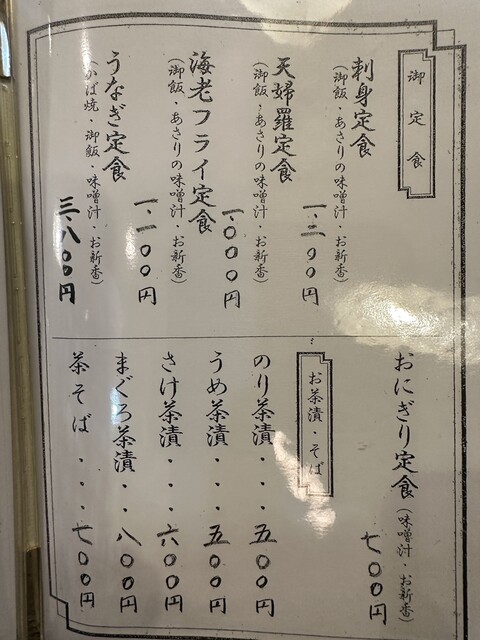 御定食
刺身定食
(御飯・あさりの味噌汁・お新香)
一、二〇〇円
天婦羅定食
(御飯・あさりの味噌汁・お新香)
一、〇〇〇円
海老フライ定食
(御飯・あさりの味噌汁・お新香)
一、一〇〇円
うなぎ定食
(かば焼・御飯・味噌汁・お新香)
三、八〇〇円
おにぎり定食(味噌汁・お新香)
七〇〇円
お茶漬・そば
のり茶漬・・・五〇〇円
うめ茶漬・・・五〇〇円
さけ茶漬・・・六〇〇円
まぐろ茶漬・・八〇〇円
茶そば・・・七〇〇円